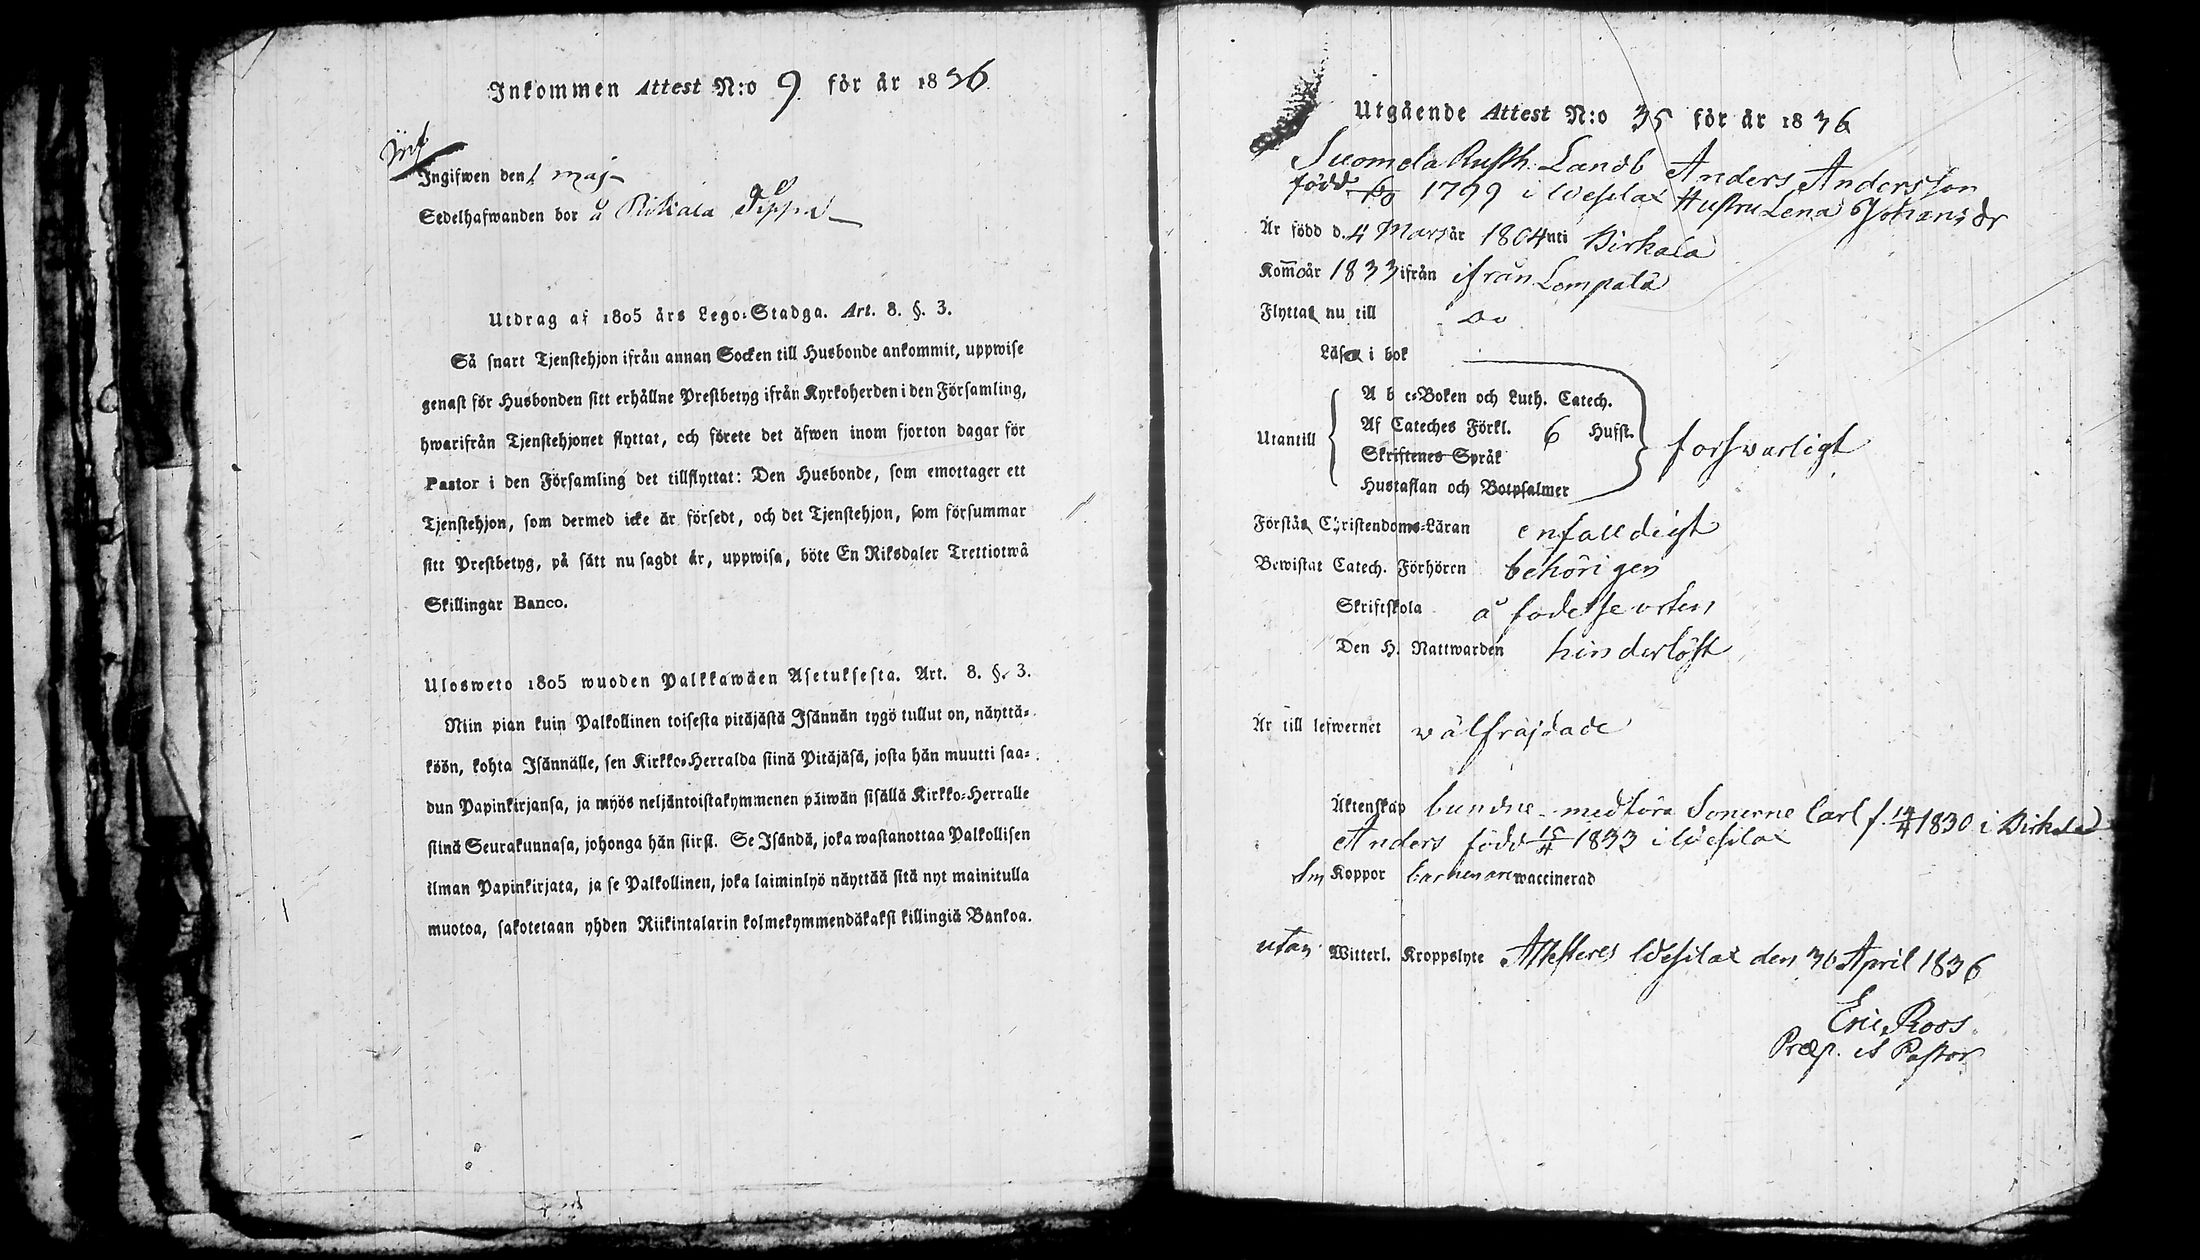 Inkommen Attest N:o 9. för år 1836.
Inf
Ingifwen den 1 maj
Sedelhafwanden bor å Riikala Seppä
Utdrag af 1805 års Lego-Stadga. Art. 8. §. 3.
Så snart Tjenstehjon ifrån annan Socken till Husbonde ankommit, uppwise
genast för Husbonden sitt erhållne Prestbetyg ifrån Kyrkoherden i den Församling,
hwarifrån Tjenstehjonet flyttat, och förete det äfwen inom fjorton dagar för
Pastor i den Församling det tillflyttat: Den Husbonde, som emottager ett
Tjenstehjon, som dermed icke är försedt, och det Tjenstehjon, som försummar
sitt Prestbetyg, på sätt nu sagdt är, uppwisa, böte En Riksdaler Trettiotwå
Skillingar Banco.
Ulosweto 1805 wuoden Palkkawäen Asetuksesta. Art. 8. §. 3.
Niin pian kuin Palkollinen toisesta pitäjästä Isännän tygö tullut on, näyttä-
köön, kohta Isännälle, sen Kirkko-Herralda siinä Pitäjäsä, josta hän muutti saa-
dun Papinkirjansa, ja myös neljäntoistakymmenen päiwän sisällä Kirkko-Herralle
siinä Seurakunnasa, johonga hän siirsi. Se Isändä, joka wastanottaa Palkollisen
ilman Papinkirjata, ja se Palkollinen, joka laiminlyö näyttää sitä nyt mainitulla
muotoa, sakotetaan yhden Riikintalarin kolmekymmendäkaksi killingiä Bankoa.
Utgående Attest N:o 35 för år 1836
Suomela Rusth. Landb Anders Andersson
född 1799 i Wesilax Hustru Lena Johansdr
Är född d. 4 Mars år 1804 uti Birkala
Kom̄o år 1833 ifrån ifrån Lempälä
Flyttat nu till do
Läsa i bok
Utantill
A b c-Boken och Luth. Catech.
Af Cateches Förkl. 6 Hufst.
Skriftenes Språk
Hustaflan och Botpsalmer
forswarligt
Förstå Christendoms-Läran enfalldigt
Bewistat Catech. Förhören behörigen
Skriftskola å födelse orten
Den H. Nattwarden hinderlöst
Är till lefwernet wälfräjdade
Äktenskap bundne medföra Sonerne Carl f. 14/4 1830 i Birkala
Anders född 15/4 1833 i Wesilax
Sm Koppor barnen äro waccinerad
utan Witterl. Kroppslyte Attesteres Wesilax den 30 April 1836
Eric Roos
Præp. et Pastor